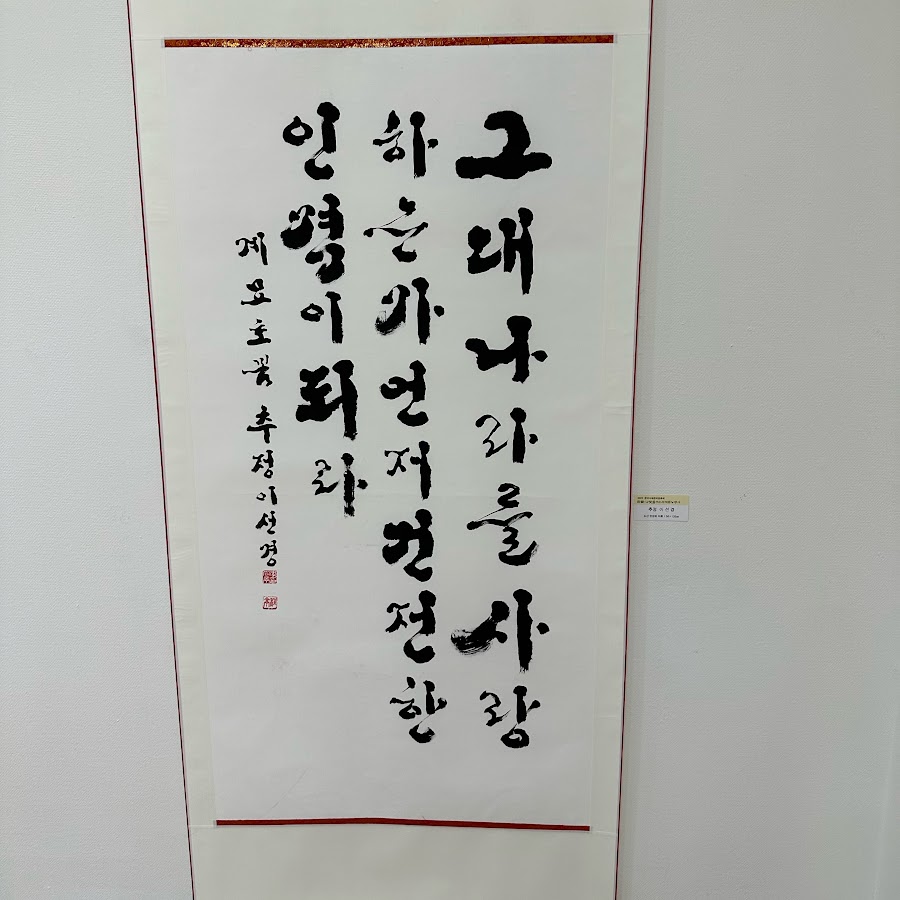 그대나라를사랑
하는가먼저건전한
인격이되라
계묘초봄 추정이선경
추정 이선경